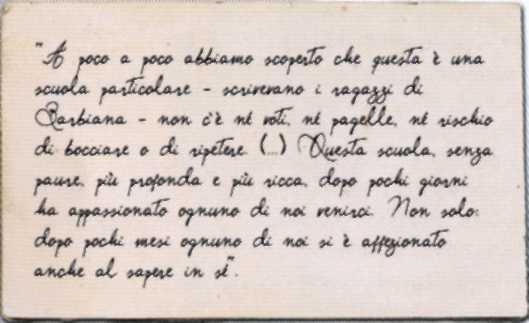 "A poco a poco abbiamo scoperto che questa è una
scuola particolare - scrivevano i ragazzi di
Barbiana - non c'è né voti, né pagelle, né rischio
di bocciare o di ripetere. (...) Questa scuola, senza
paure, più profonda e più ricca, dopo pochi giorni
ha appassionato ognuno di noi venirci. Non solo:
dopo pochi mesi ognuno di noi si è affezionato
anche al sapere in sé".